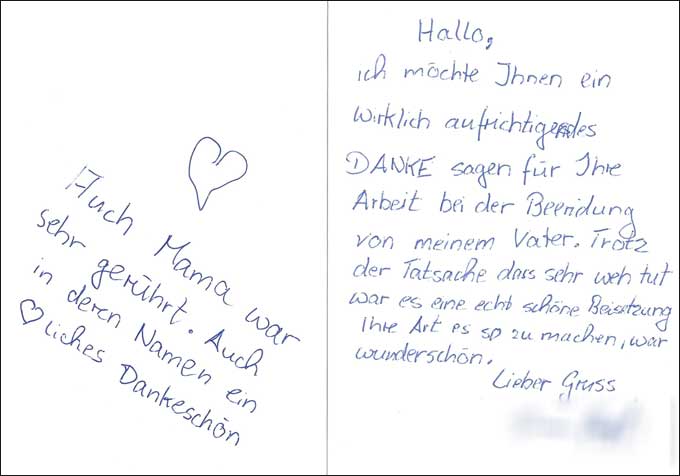 Auch Mama war
sehr gerührt. Auch
in deren Namen ein
♡liches Dankeschön
Hallo,
ich möchte Ihnen ein
wirklich aufrichtigendes
DANKE sagen für Ihre
Arbeit bei der Beeridung
von meinem Vater. Trotz
der Tatsache dass sehr weh tut
war es eine echt schöne Beisetzung
Ihre Art es so zu machen, war
wunderschön.
Lieber Gruss